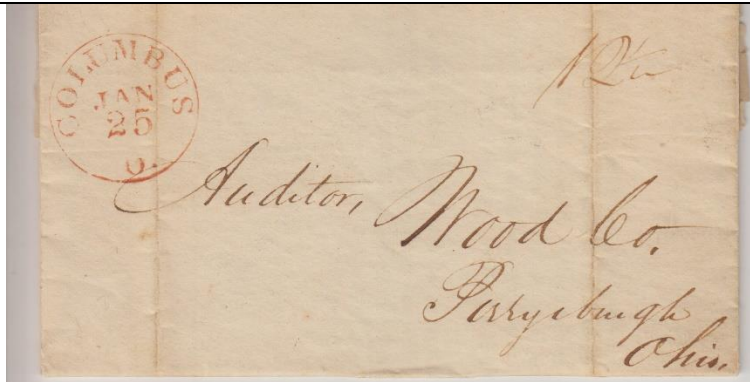 COLUMBUS
JAN
25
O.
12½
Auditor, Wood Co.
Perrysburgh
Ohio.